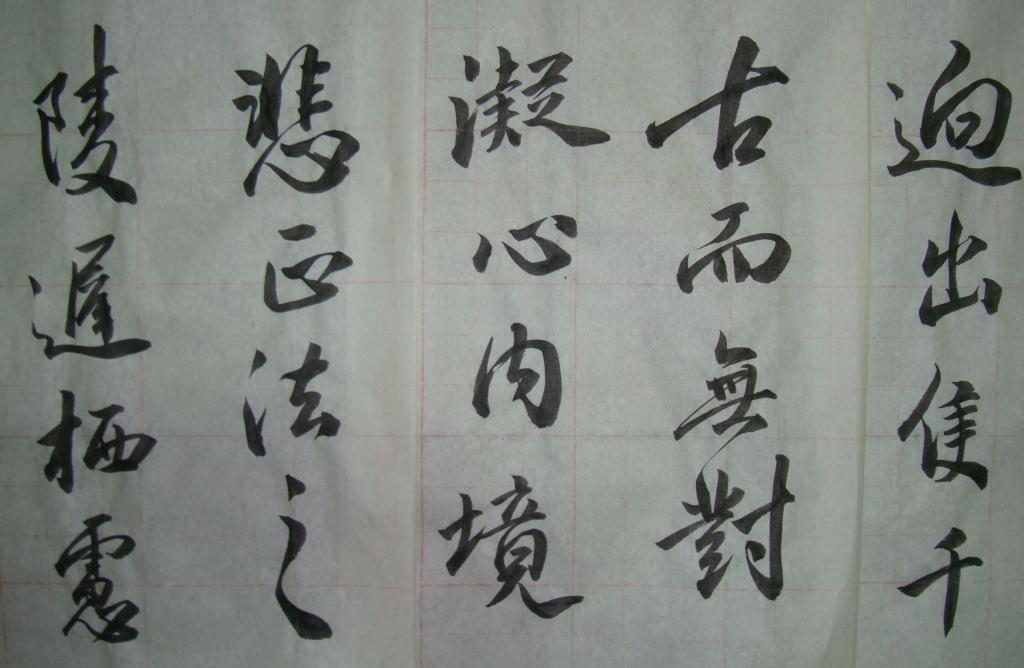 迥出隻千
古而無對
凝心内境
悲正法之
陵遲栖慮